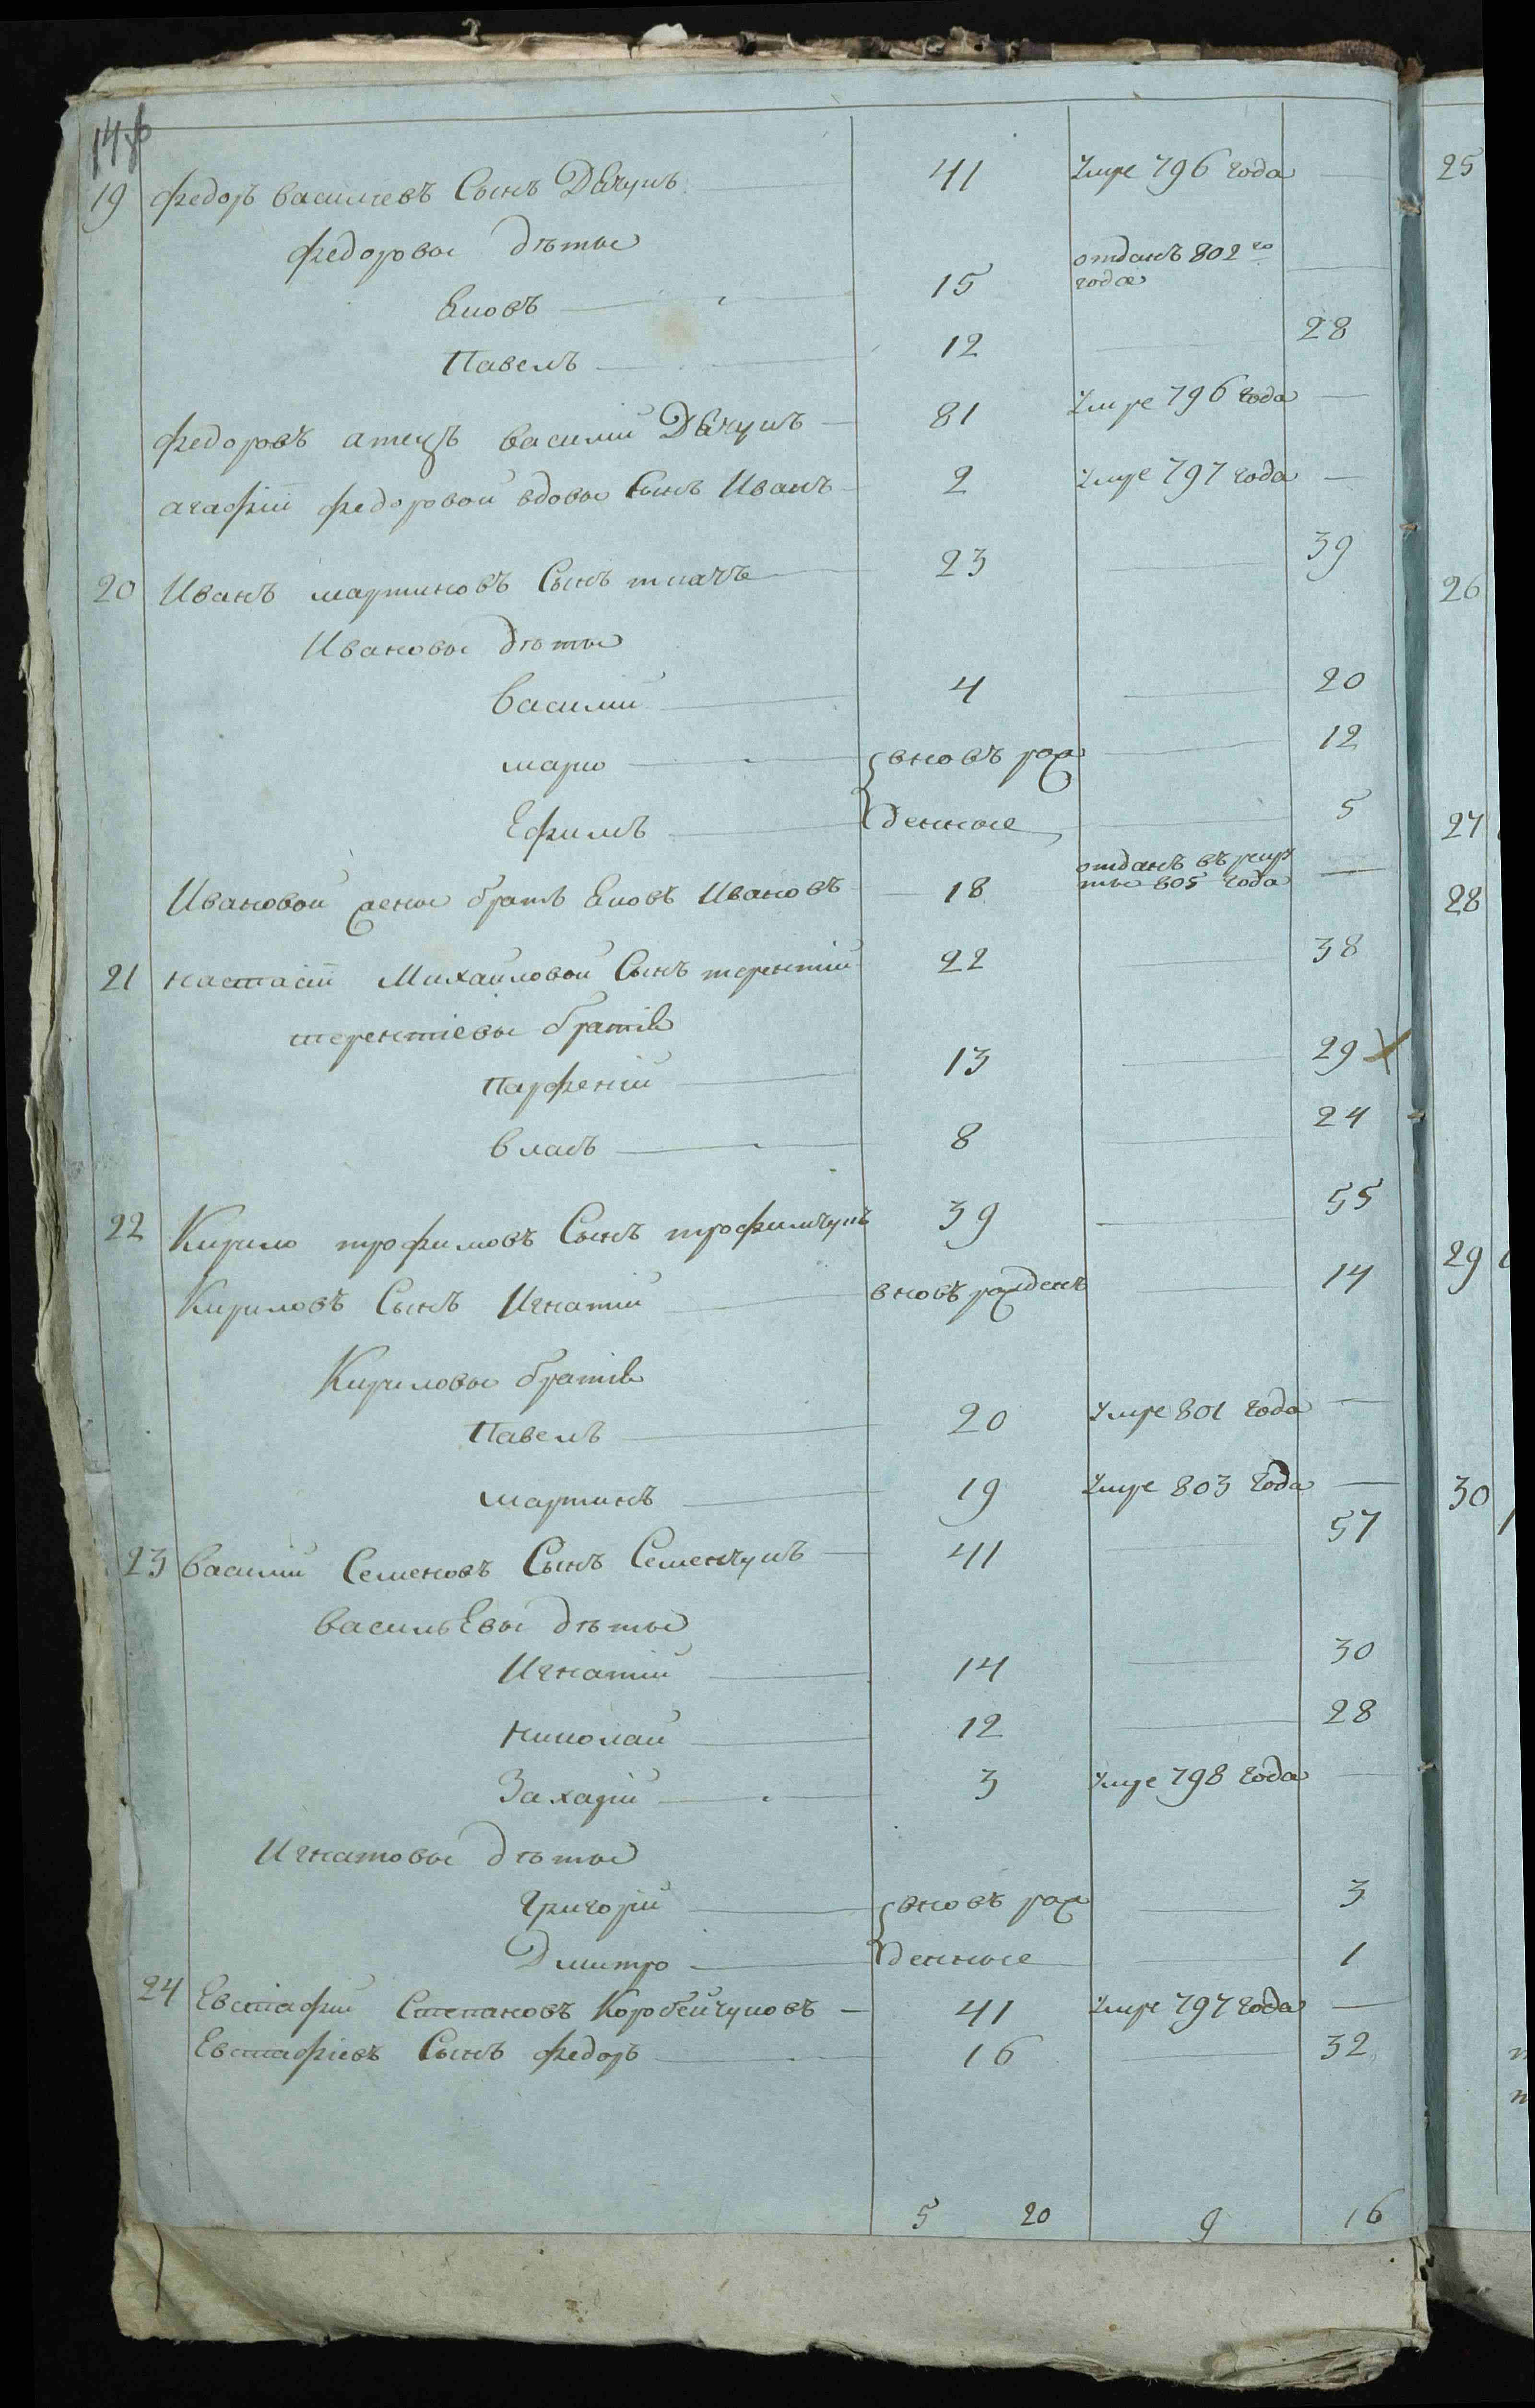 19 Федоръ васильевъ Сынъ Дячукъ 41 Умре 796 года
Федоровы дѣти
Яковъ 15 отданъ 802го года
Павелъ 12 28
Федоровъ атецъ василий Дячукъ 81 Умре 796 года
агафіи федоровой вдовы Сынъ Иванъ 2 Умре 797 года
20 Иванъ мартиновъ Сынъ ткачъ 23 39
Ивановы дѣти
василий 4 20
марко {вновъ рож 12
Ефимъ {денные 5
Ивановой жены братъ Яковъ Ивановъ 18 отданъ въ рекруты 805 года
21 настасіи Михайловой Сынъ терентий 22 38
терентіевы братія
Парфений 13 29 X
власъ 8 24
22 Кирило трофимовъ Сынъ трофимчукъ 39 55
Кириловъ Сынъ Игнатий вновъ рожденъ 14
Кириловы братія
Павелъ 20 Умре 801 года
мартинъ 19 Умре 803 года
23 василий Семеновъ Сынъ Семенчукъ 41 57
васильЕвы дѣти
Игнатий 14 30
николай 12 28
Захарий 3 Умре 798 года
Игнатовы дѣти
Григорий {вновъ рож 3
Дмитро {денные 1
24 Евстафий Степановъ Коробейчуковъ 41 Умре 797 года
Евстафіевъ Сынъ федоръ 16 32
5 20 9 16
25
26
27
28
29
30